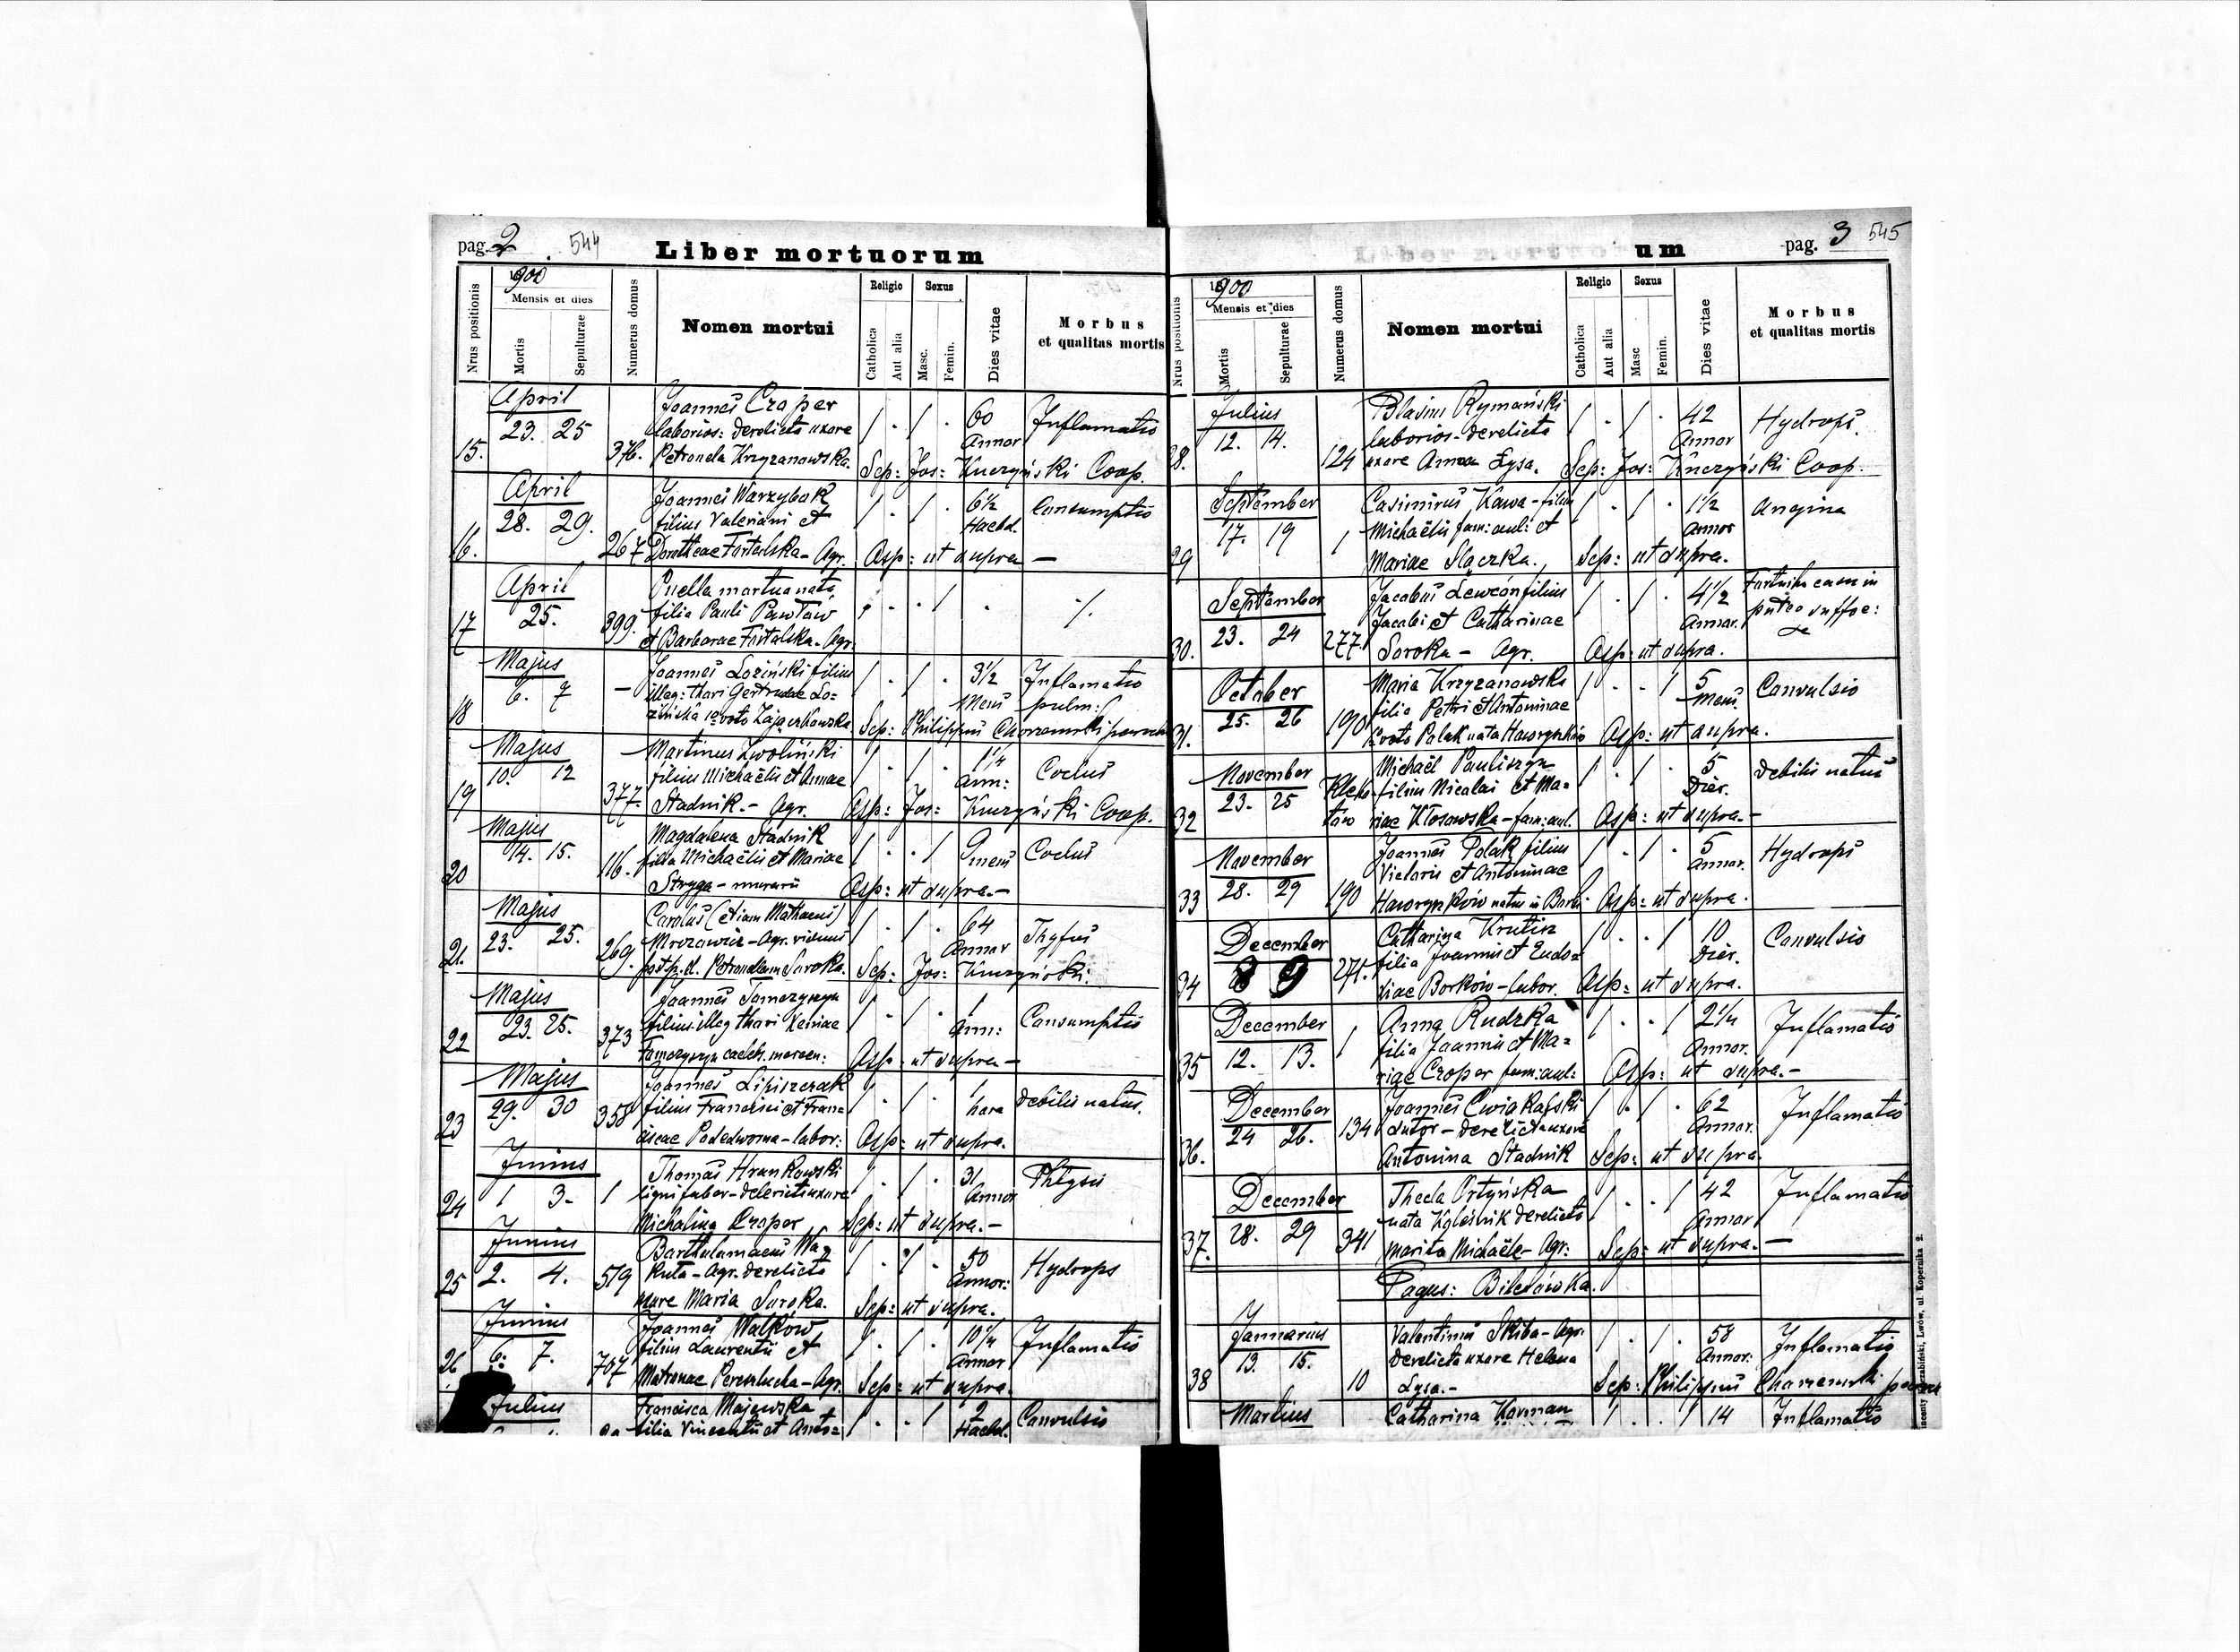 pag. 2 544
Liber mortuorum
1900
Mensis et dies
Nrus positionis
Mortis
Sepulturae
Numerus domus
Nomen mortui
Religio
Catholica
Aut alia
Sexus
Masc.
Femin.
Dies vitae
Morbus
et qualitas mortis
April
23. 25
15.
376.
Joannes Craper
laborios: derelicta uxore
Petronela Krzyzanowska.
60
Annor
Inflamatio
Sep: Jos: Kuczyński Coop.
April
28. 29.
16.
267
Joannes Warzybok
filius Valeriani et
Dorotheae Fortalska - Agr.
6 1/2
Hebd.
Consumptio
Asp: ut supra —
April
25.
17
399.
Puella mortua nata,
filia Pauli Pawłow
et Barbarae Fortalska - Agr.
Majus
6. 7
18
—
Joannes Loziński filius
illeg: thori Gertrudae Lo=
zińska 1o voto Zajączkowska
3 1/2
Mens
Inflamatio
pulm:
Sep: Philippus Charzewski paroch
Majus
10. 12
19
377.
Martinus Zwoliński
filius Michaëlis et Annae
Stadnik. - Agr.
1 1/4
Ann:
Coclus
Asp: Jos: Kuczyński Coop.
Majus
14. 15.
20
116.
Magdalena Stadnik
filia Michaëlis et Mariae
Stryga - murarii
9
mens
Coclus
Asp: ut supra.-
Majus
23. 25.
21.
269.
Carolus (etiam Mathaeus)
Mrozowicz - Agr. viduus
post p. d. Petronellam Soroka.
64
Annor
Thyfus
Sep: Jos: Kuczyński.
Majus
23. 25.
22
373
Joannes Tomczyszyn
filius illeg thori Xeniae
Tomczyszyn caeleb. mercen:
1
Ann:
Consumptio
Asp: ut supra —
Majus
29. 30
23
358
Joannes Lipiszczak
filius Francisci et Fran=
ciscae Pododworna - labor:
1
hora
debilis natus.
Asp: ut supra.
Junius
1 3-
24
1
Thomas Hrankowski
ligni faber - derelicta uxore
Michalina Craper
31
Annor
Phtysis
Sep: ut supra.-
Junius
2. 4.
25
519
Bartholomaeus Wa=
kuta - Agr. derelicta
uxore Maria Soroka.
50
Annor:
Hydrops
Sep: ut supra.
Junius
6. 7.
26
707
Joannes Walkow
filius Laurentii et
Matronae Pereszlucha - Agr.
10 1/4
Annor
Inflamatio
Sep: ut supra.
Julius
Francisca Majewska
filia Vincentii et Anto=
2
Hebd.
Convulsio
um
pag. 3 545
1900
Mensis et dies
Nrus positionis
Mortis
Sepulturae
Numerus domus
Nomen mortui
Religio
Catholica
Aut alia
Sexus
Masc
Femin.
Dies vitae
Morbus
et qualitas mortis
Julius
12. 14.
28.
124
Blasius Rymański
laborios - derelicta
uxore Anna Łysa.
42
Annor
Hydrops.
Sep: Jos: Kuczyński Coop.
September
17. 19
29
1
Casimirus Kawa - filius
Michaëlis fam: aul: et
Mariae Slączka.
1 1/2
Annor
Angina
Sep: ut supra.
September
23. 24
30.
277
Jacobus Lewcon filius
Jacobi et Catharinae
Soroka - Agr.
4 1/2
Annor.
Fortuito casu in
puteo suffoc:
Asp: ut supra.
October
25. 26
31.
190
Maria Krzyzanowska
filia Petri et Antoninae
1o voto Polak nata Haworynków
5
Mens.
Convulsio
Asp: ut supra.
November
23. 25
32
Michaël Pauliszyn
filius Nicolai et Ma=
riae Kłosowska - fam: aul.
5
Dier.
debilis natus
Asp: ut supra.-
November
28. 29
33
190
Joannes Polak filius
Victoris et Antoninae
Haworynków natus in Borki
5
Annor.
Hydrops
Asp: ut supra.
December
8 9
34
271.
Catharina Krutin
filia Joannis et Eudo=
xiae Borków - labor.
10
Dier.
Convulsio
Asp: ut supra.
December
12. 13.
35
1
Anna Rudzka
filia Joannis et Ma=
riae Croper fam: aul:
2 1/4
Annor.
Inflamatio
Asp: ut supra.-
December
24 26.
36.
134
Joannes Cwiakalski
sutor - derelicta uxore
Antonina Stadnik
62
Annor.
Inflamatio
Sep: ut supra.
December
28. 29
37.
341
Thecla Ortyńska
nata Kgleśnik derelicto
marito Michaële - Agr:
42
Annor
Inflamatio
Sep: ut supra.—
Pagus: Bilesówka.
Januarius
13. 15.
38
10
Valentinus Skiba - Agr.
derelicta uxore Helena
Lysa.-
58
Annor:
Inflamatio
Sep: Philippus Charzewski paroch
Martius
Catharina Korman
14
Inflamatio
Lwów, ul. Kopernika 2.